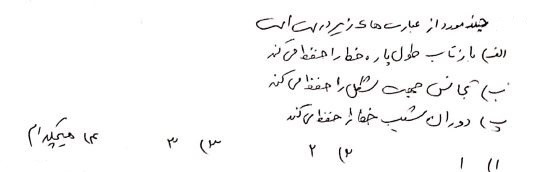 چند مورد از عبارت های زیر درست است
الف) بازتاب طول پاره خط را حفظ می کند
ب) تجانس جهت شکل را حفظ می کند
پ) دوران شیب خط را حفظ می کند
۱) ۱ ۲) ۲ ۳) ۳ ۴) هیچکدام